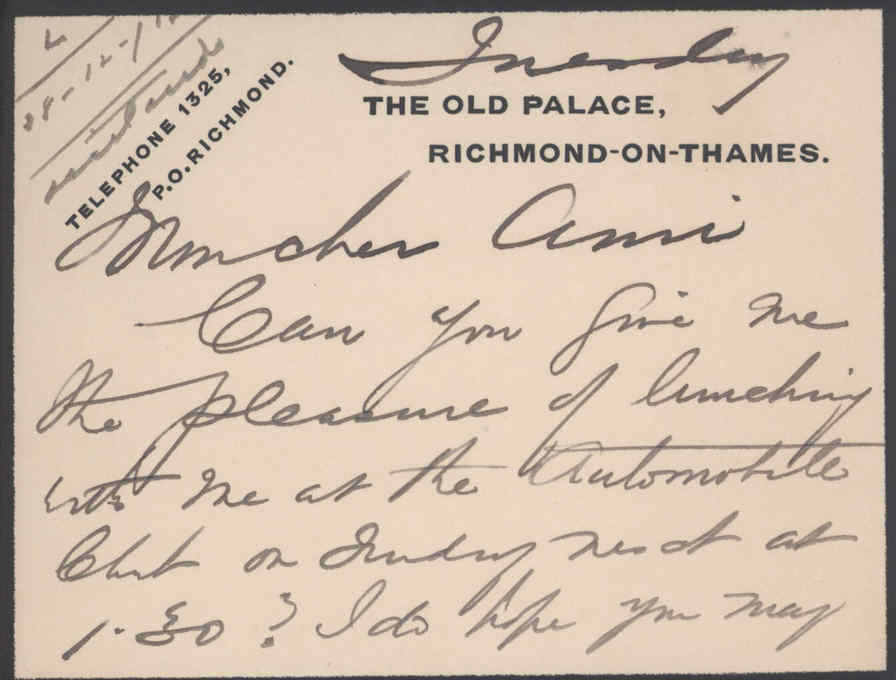 28-12-1
TELEPHONE 1325,
P.O. RICHMOND.
Tuesday
THE OLD PALACE,
RICHMOND-ON-THAMES.
Mon cher Ami
Can you give me
the pleasure of lunching
with me at the Automobile
Club on next at
1.30? I do hope you may